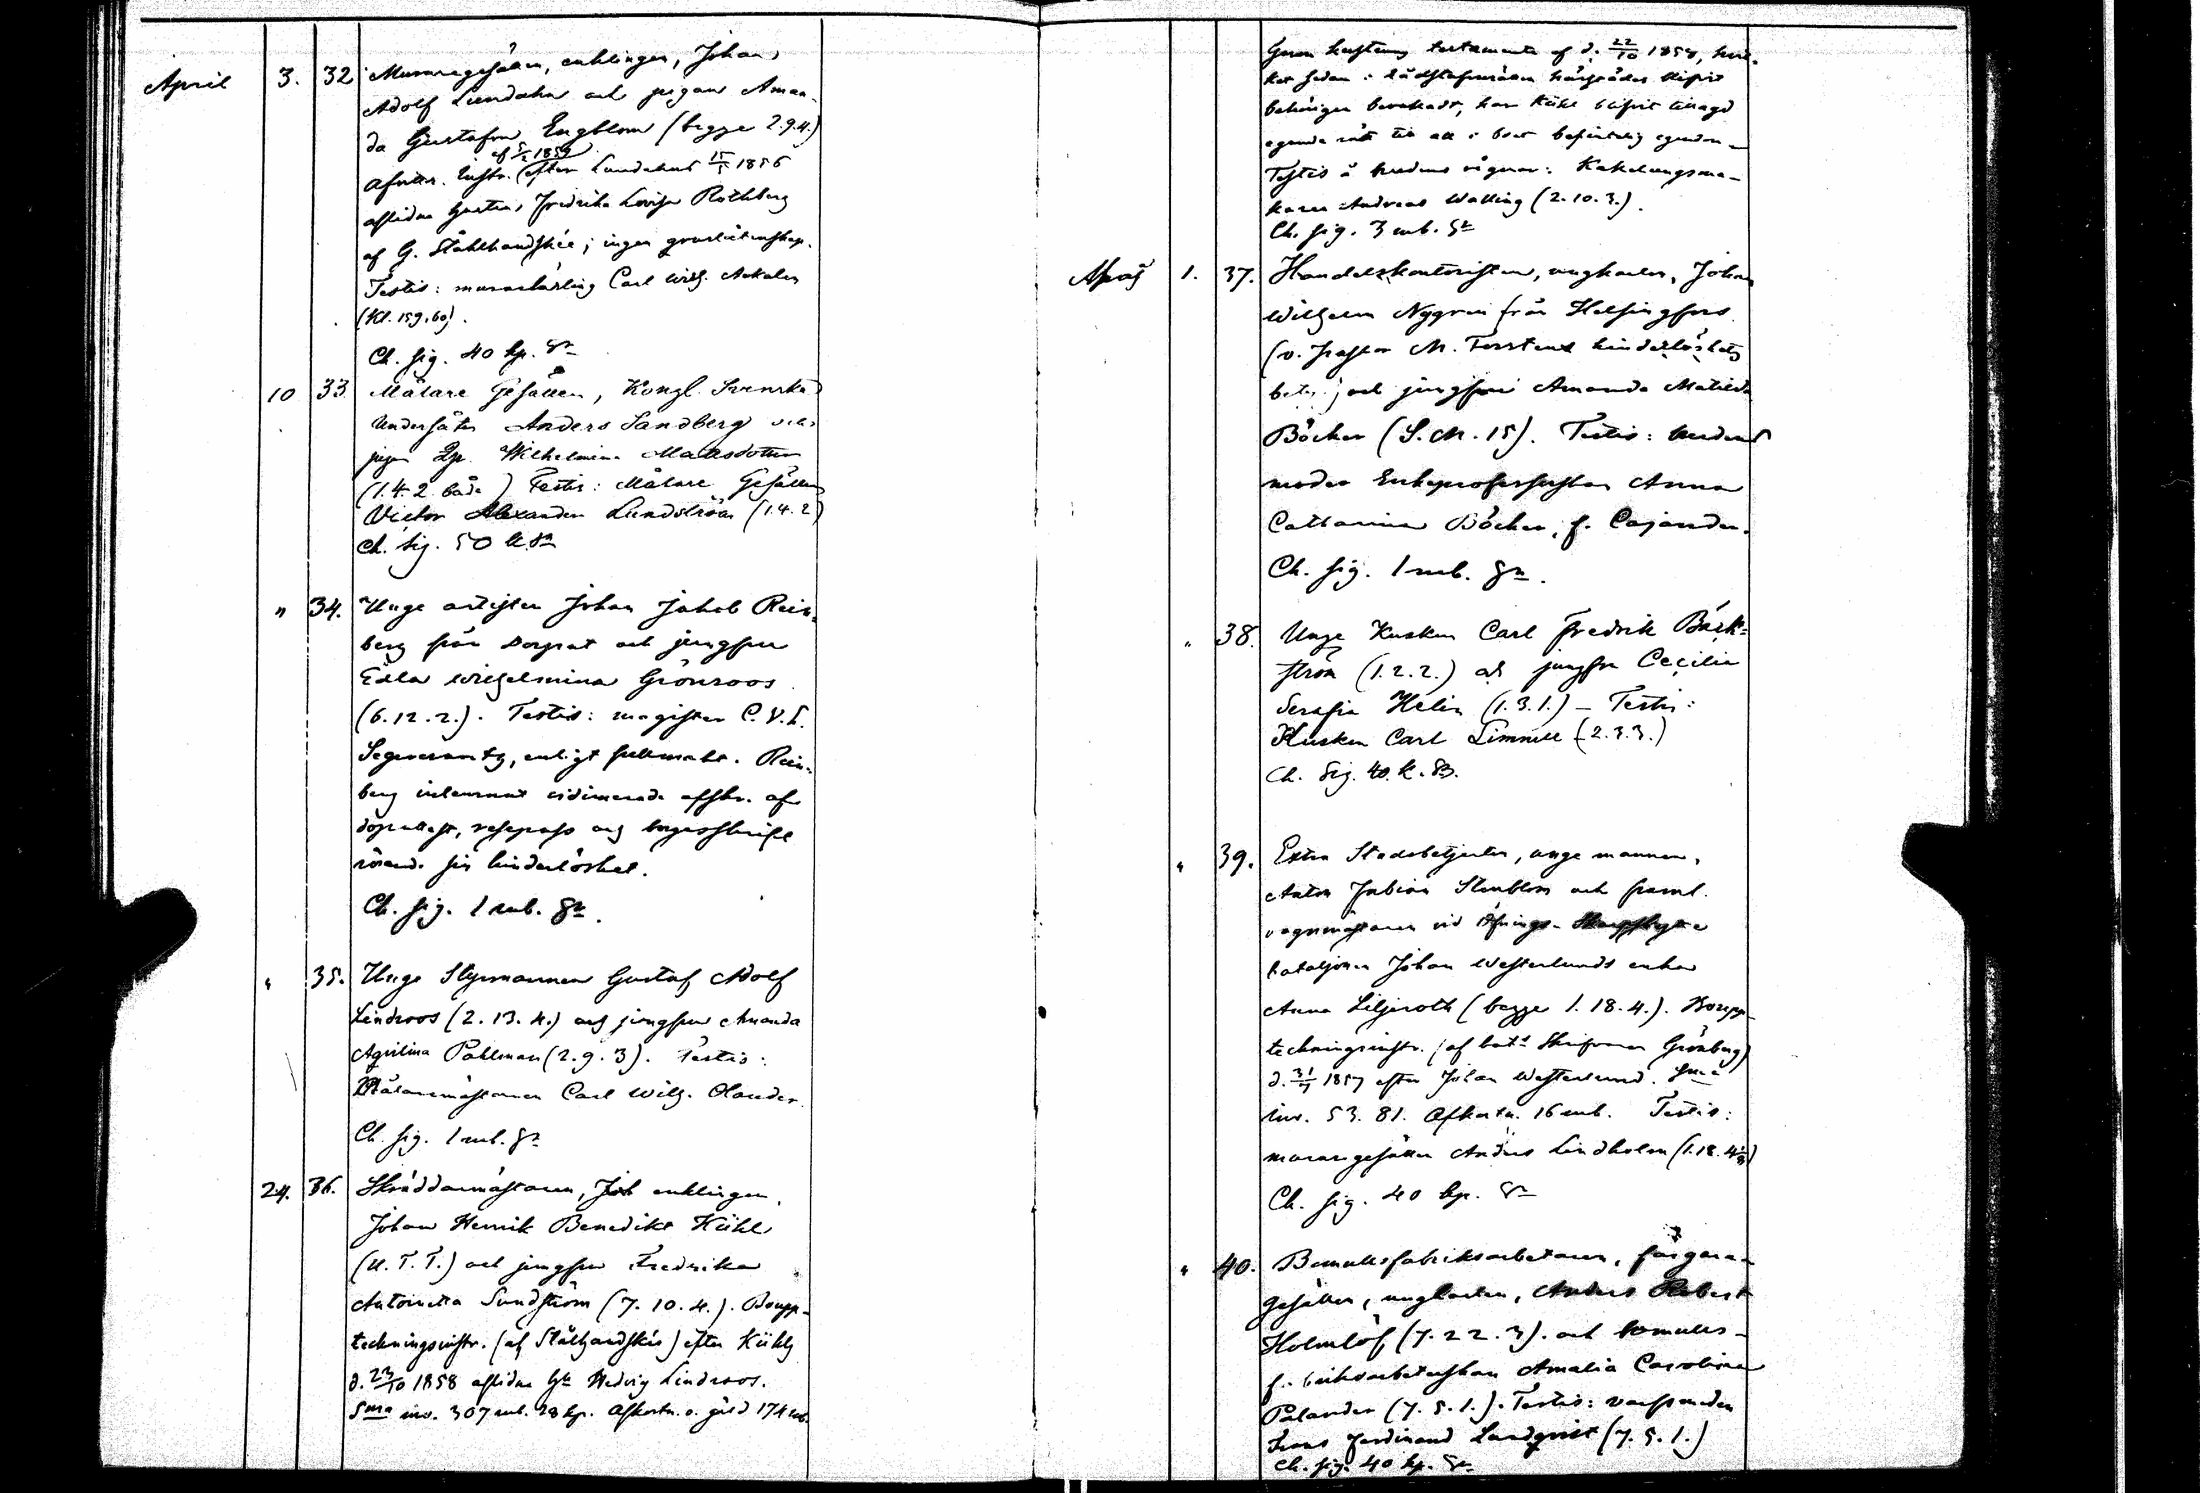 April 3. 32 Muraregesällen, enklingen, Johan
Adolf Lundahn och pigan Aman-
da Gustafva Engblom (begge 2.9.4.)
af 5/2 1859
Afvittr. instr. efter Lundahns 15/5 1856
aflidna hustru, Fredrika Lovisa Rothberg
af G. Stålhandské; ingen
Testis: murarlärling Carl Wilh.
(Kl. 159.60).
Ch. sig. 40 kp. Sr
10 33 Målare Gesällen, Kongl. Svenska
Undersåten Anders Sandberg och
pigan Wilhelmina Matsdotter
(1.4.2 båda) Testis: Målare Gesällen
Victor Alexander Lundström (1.4.2)
Ch. sig. 50 k. Sr
" 34. Unge artisten Johan Jakob Rein-
berg från Dorpat och jungfru
Edla Wilhelmina Grönroos
(6.12.2.). Testis: magister C.V.L.
Segercrantz, enligt fullmakt. Rein-
berg inlemnat vidimerade afskr. af
döpattest, respass och borgesskrift
rörande sin hinderlöshet.
Ch. sig. 1 rub. Sr.
" 35. Unge Styrmannen Gustaf Adolf
Lindroos (2.13.4.) och jungfru Amanda
Pahlman (2.9.3). Testis:
Målaremästaren Carl Wilh. Olander.
Ch. sig. 1 rub. Sr
24. 36. Skräddarmästaren, enklingen,
Johan Henrik Benedikt Kühl
(U.T.T.) och jungfru Fredrika
Antoinetta Sundström (7.10.4.).Boupp-
teckningsinstr. (af Stålhandské) efter Kühls
d. 23/10 1858 aflidna Hu Hedvig Lindroos.
Sma inv. 307 rub. 28 kp. Afkortn. o. gäld 174 rub.
Genom hustruns testamente af d. 22/10 1858, hvil-
ket sedan i rådstufvurätten härstädes blifvit
behörigen bevakadt, har Kühl blifvit tillagd
egande rätt till all i boet befintelig egendom
Testis å brudens vägnar: Kakelungsma-
karen Andreas Walling (2.10.3.).
Ch. sig. 3 rub. Sr
Maj 1. 37. Handelskontoristen, ungkarlen, Johan
Wilhelm Nygren från Helsingfors
(v. pastor M. hinderlöshets
betyg) och jungfru Amanda Matilda
Böcker (S.M.15). Testis: brudens
moder Enkeprofessorskan Anna
Catharina Böcker, f. Cajander.
Ch. sig. 1 rub. Sr.
" 38. Unge Kusken Carl Fredrik Bäck-
ström (1.2.2.) och jungfru Cecilia
Serafia Helin (1.3.1.) – Testis:
Kusken Carl Limnell (2.3.3.)
Ch. sig. 40. k. Sr.
" 39. Extra Stadsbetjenten, unge mannen,
Anton Fabian Stenblom och framl.
vagnmästaren vid Åbo
bataljonen Johan Westerlunds enka
Anna Liljeroth (begge 1.18.4.). Boupp-
teckningsinstr. (af Skrifvaren Grönberg)
d. 31/7 1857 efter Johan Westerlund. Sma
inv. 53.81. Afkortn. 16 rub. Testis:
muraregesällen Anders Lindholm (1.18.4)
Ch. sig. 40 kp. Sr
" 40. Bomullsfabriksarbetaren, färgare-
gesällen, ungkarlen, Anders Robert
Holmlöf (7.22.3). och bomulls-
fabriksarbeterskan Amalia Carolina
Palander (7.5.1.). Testis:
Frans Ferdinand Landqvist (7.5.1.)
Ch. sig. 40 kp. Sr